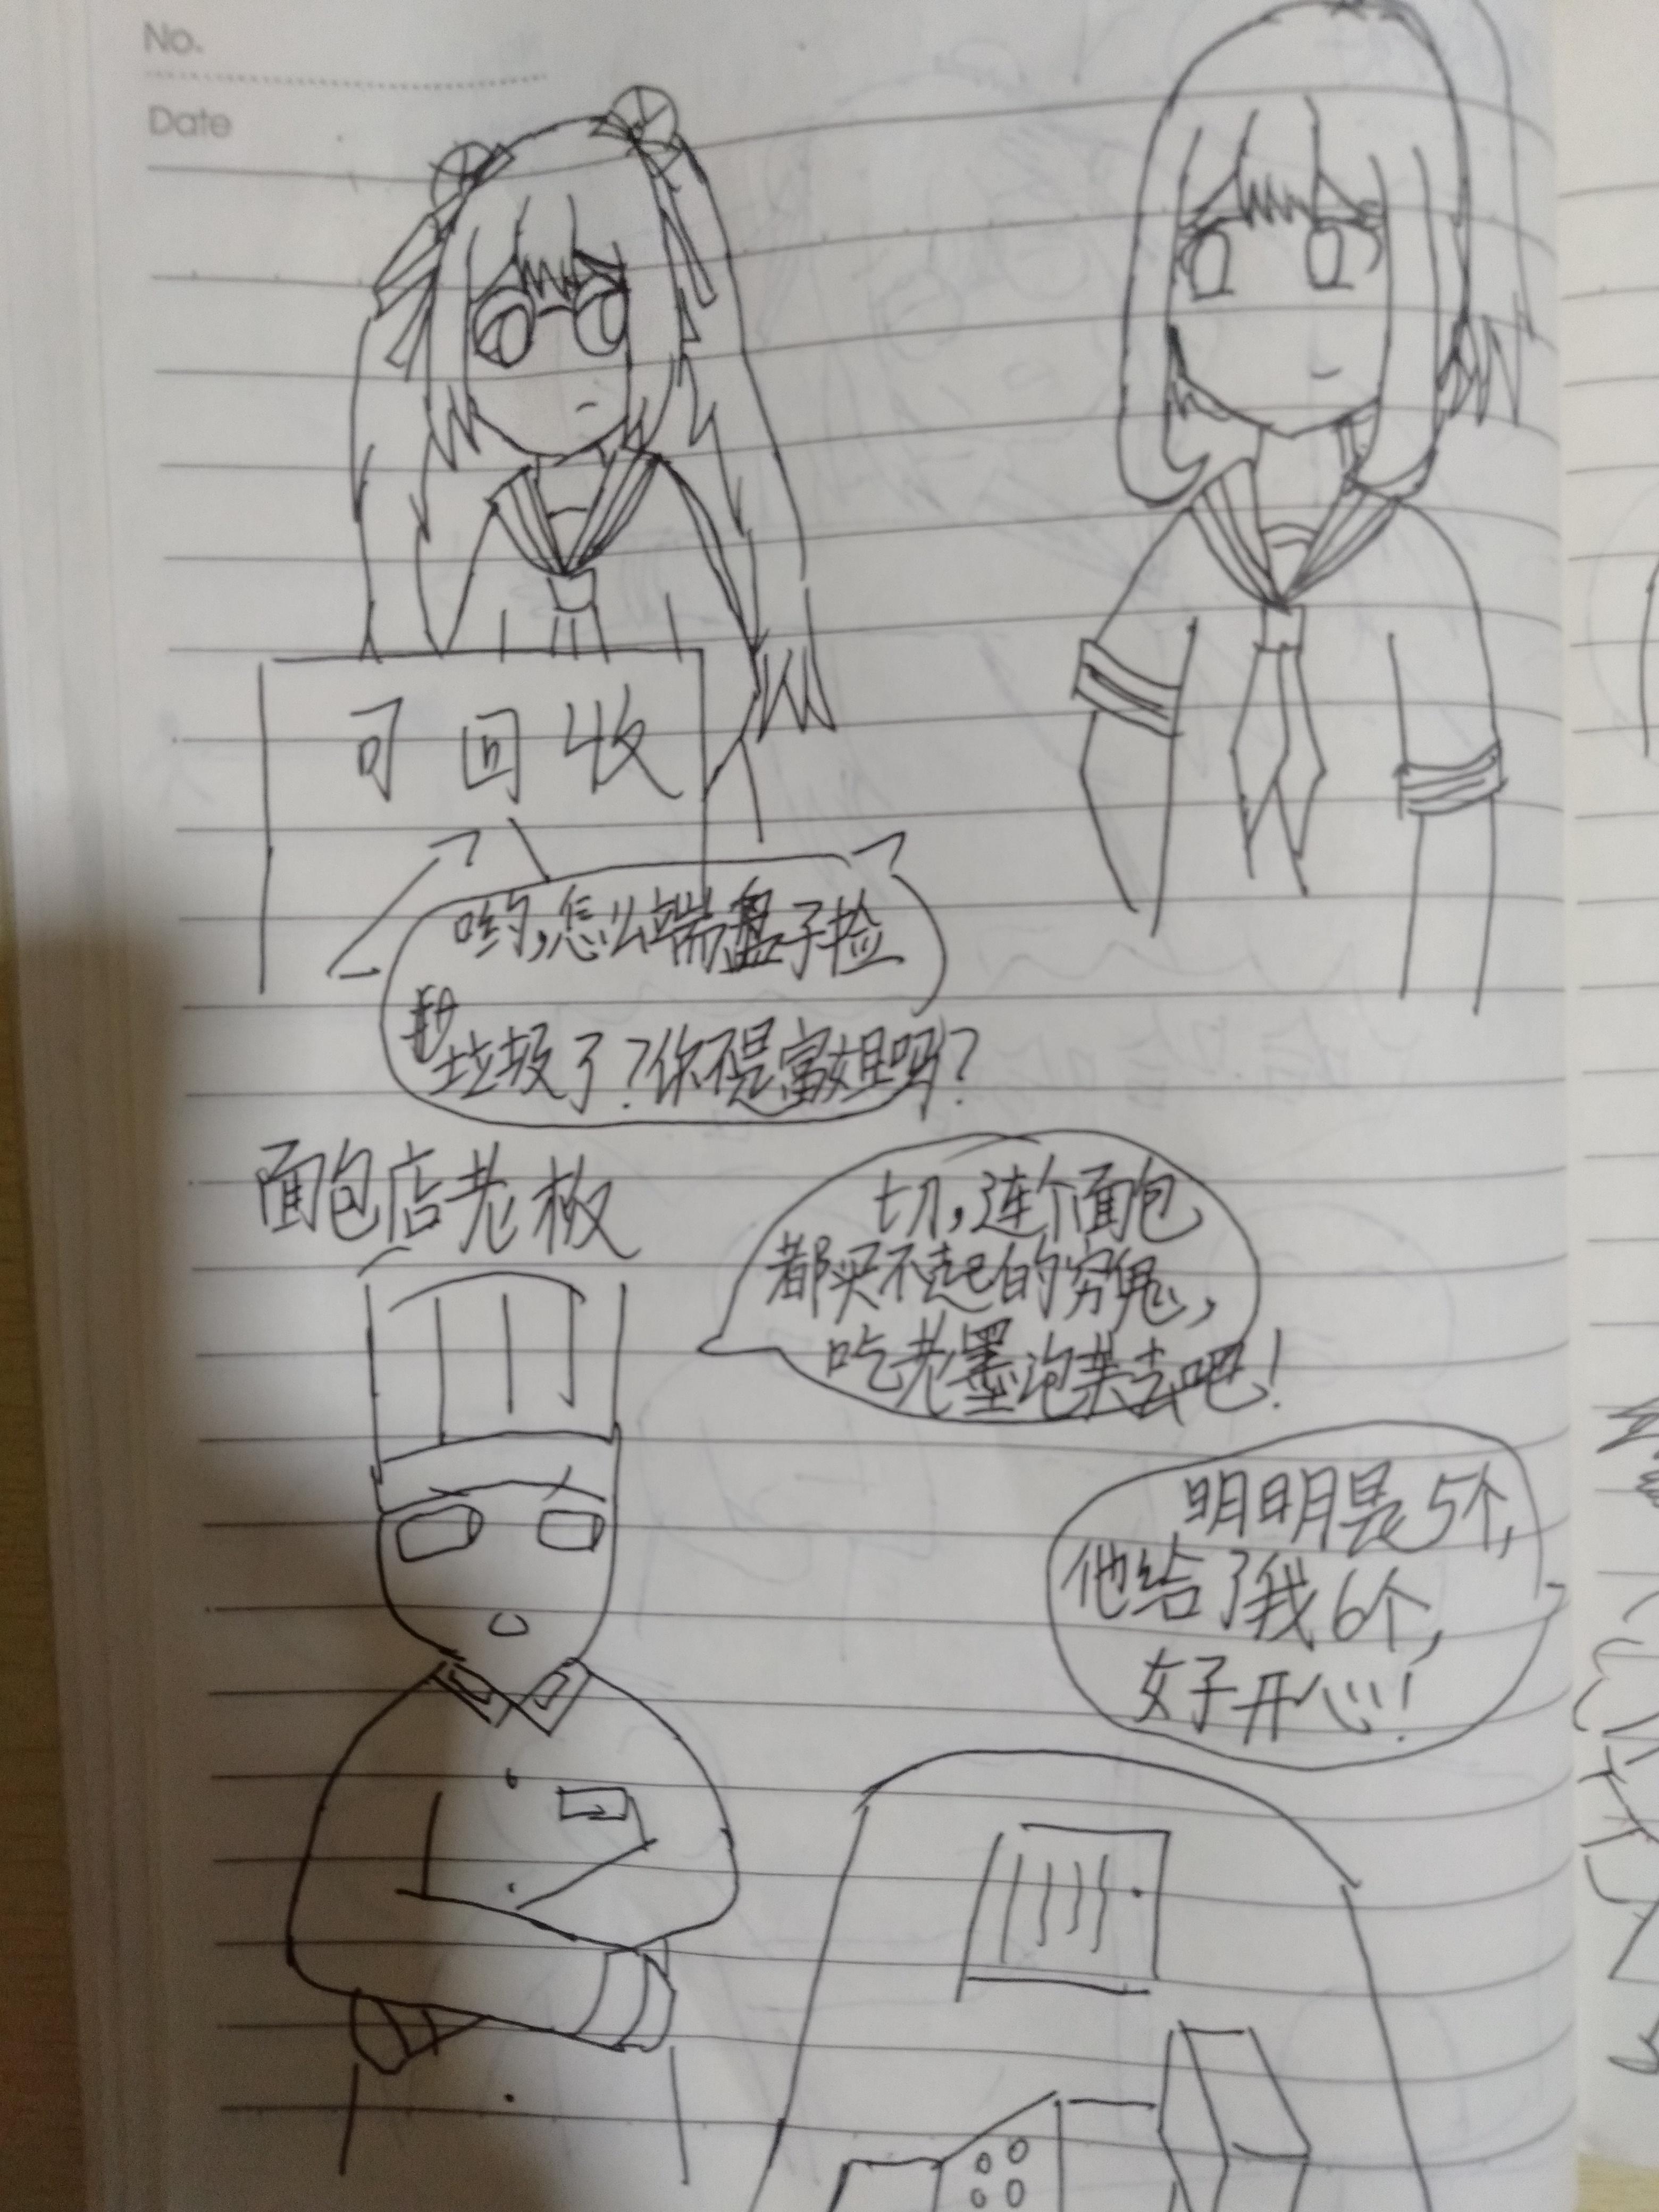 No.
Date
可回收
哟,怎么端盘子捡
垃圾了?你不是富姐吗?
面包店老板
切,连个面包
都买不起的穷鬼,
吃老墨泡菜去吧!
明明是5个,
他给了我6个,
好开心!